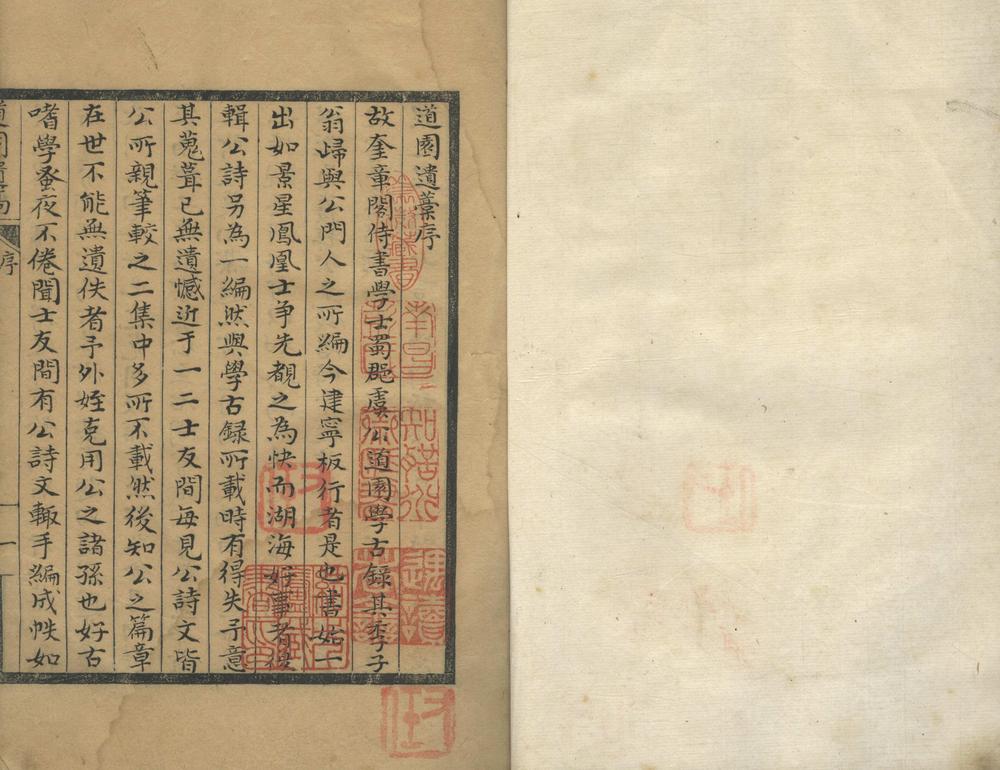 道園遺藁序
故奎章閣侍書學士蜀郡虞公道園學古錄其季子
翁歸與公門人之所編今建寧板行者是也書始一
出如景星鳳凰士爭先覩之為快而湖海好事者復
輯公詩另為一編然與學古録所載時有得失予意
其蒐葺已無遺憾近于一二士友間每見公詩文皆
公所親筆較之二集中多所不載然後知公之篇章
在世不能無遺佚者予外姪克用公之諸孫也好古
嗜學蚤夜不倦聞士友間有公詩文輙手編成帙如
道園遺藁
序
一
南昌
彭氏
知聖道
齋藏書
遇讀
者善